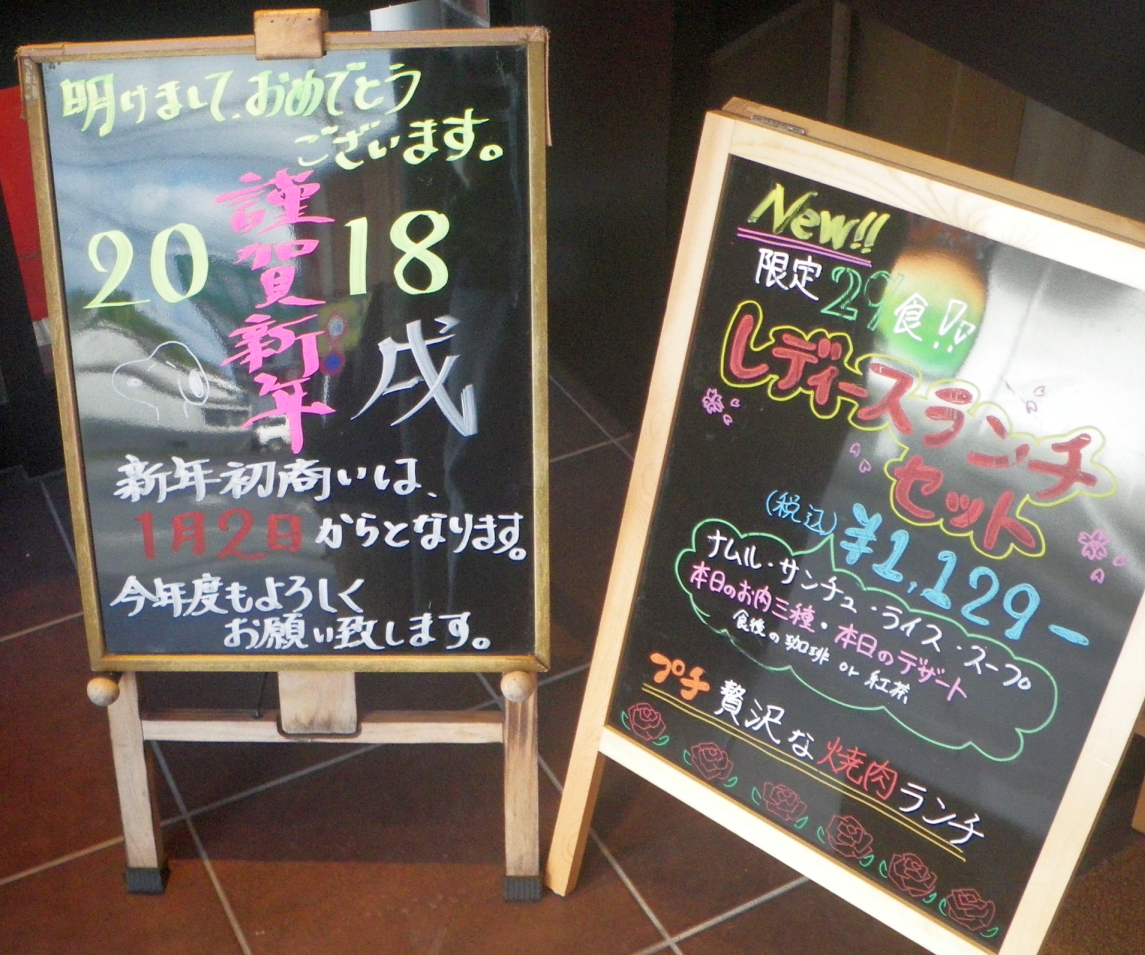 明けまして、おめでとう
ございます。
2018
謹賀新年
戌
新年初商いは、
1月2日からとなります。
今年度もよろしく
お願い致します。
New!!
限定29食!!
レディースランチ
セット
(税込)¥1,129-
ナムル・サンチュ・ライス・スープ
本日のお肉三種・本日のデザート
食後の珈琲 or 紅茶
プチ贅沢な焼肉ランチ